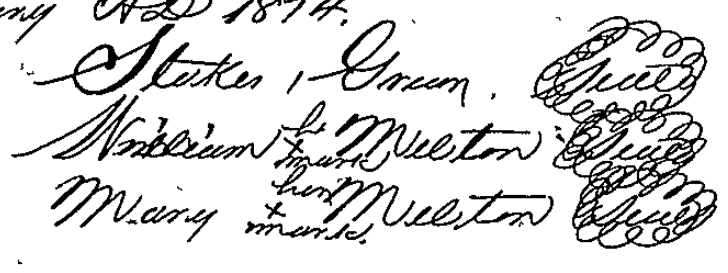 AD 1874.
Stokes, Green. Seal
William his x mark Melton Seal
Mary her x mark Melton Seal